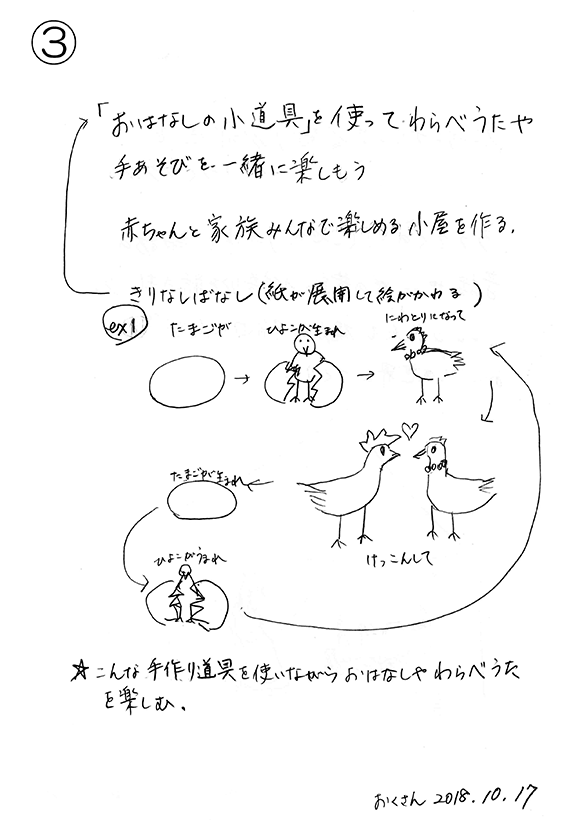 ③
「おはなしの小道具」を使って わらべうたや
手あそびを 一緒に楽しもう
赤ちゃんと家族みんなで楽しめる小屋を作る.
きりなしばなし(紙が展開して絵がかわる)
ex1
たまごが
ひよこが生まれ
にわとりになって
けっこんして
たまごが生まれ
ひよこがうまれ
☆こんな手作り道具を使いながら おはなしや わらべうた
を楽しむ.
おくさん 2018.10.17